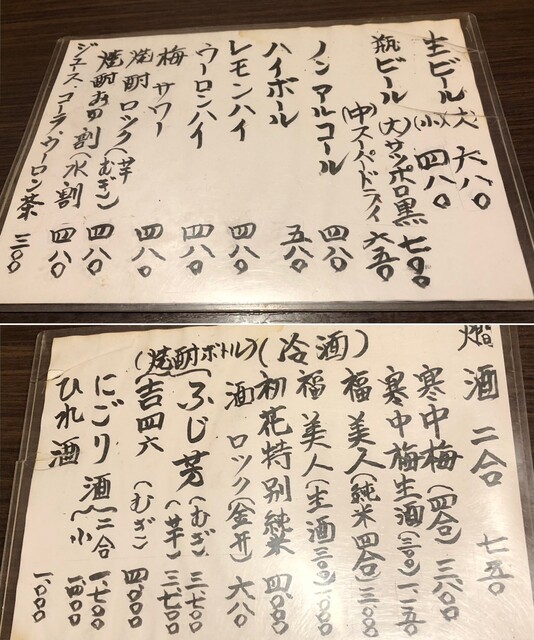 生ビール 大 六八〇
(小) 四八〇
瓶ビール (大)サッポロ黒 七〇〇
(中)スーパードライ 六五〇
ノンアルコール 四八〇
ハイボール 五八〇
レモンハイ 四八〇
ウーロンハイ 四八〇
梅サワー 四八〇
焼酎ロック(芋 むぎ) 四八〇
焼酎お湯割(水割 四八〇
ジュース・コーラ・ウーロン茶 三〇〇
燗酒 二合 七五〇
寒中梅(四合) 三八〇〇
寒中梅生酒(三〇〇) 一、二五〇
(冷酒)
福美人(純米四合) 三八〇〇
福美人(生酒三〇〇) 一〇〇〇
初花特別純米 四、〇〇〇
酒ロック(金升) 六八〇
(焼酎ボトル)
ふじ芳(むぎ) 三七〇〇
(芋) 三、七〇〇
吉四六(むぎ) 四〇〇〇
にごり酒(二合 一、七〇〇
小
ひれ酒 一、〇〇〇